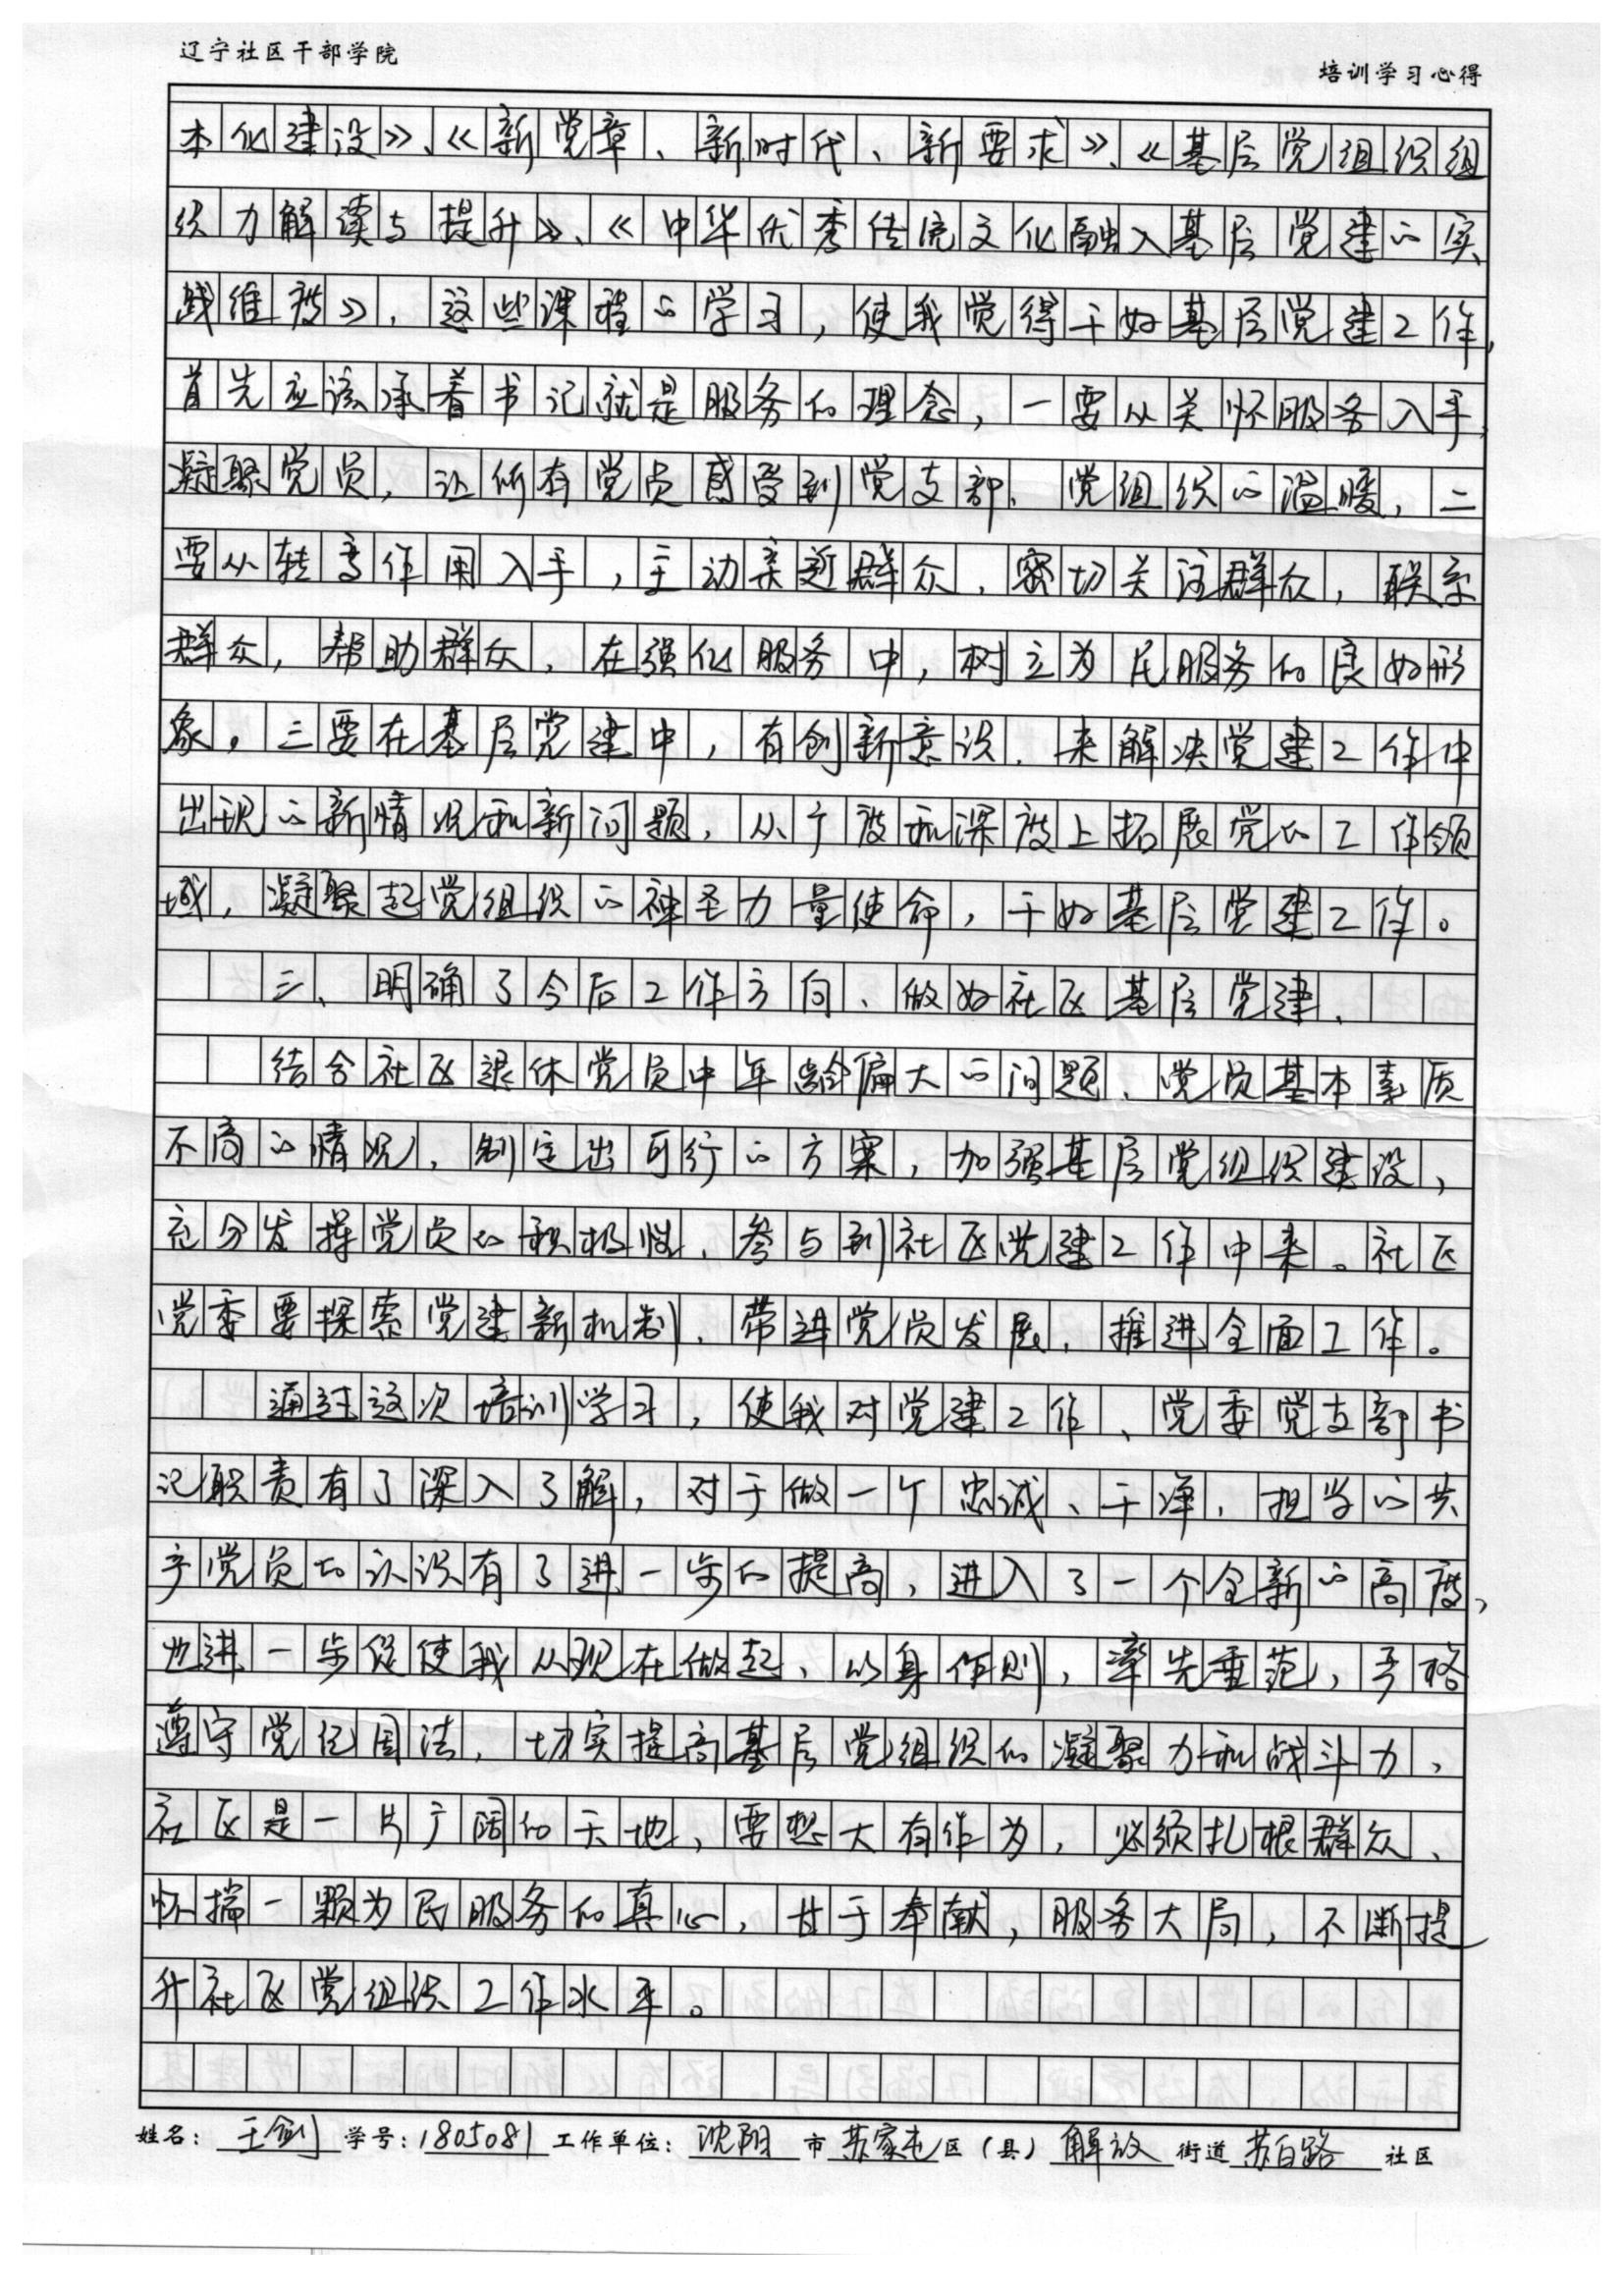 辽宁社区干部学院
培训学习心得
本化建设》、《新党章、新时代、新要求》、《基层党组织组
织力解读与提升》、《中华优秀传统文化融入基层党建的实
践维度》，这些课程的学习，使我觉得干好基层党建工作，
首先应该承着书记就是服务的理念，一要从关怀服务入手，
凝聚党员，让所有党员感受到党支部、党组织的温暖，二
要从转变作用入手，主动亲近群众，密切关注群众，联系
群众，帮助群众，在强化服务中，树立为民服务的良好形
象，三要在基层党建中，有创新意识，来解决党建工作中
出现的新情况和新问题，从广度和深度上拓展党的工作领
域，凝聚起党组织的神圣力量使命，干好基层党建工作。
三、明确了今后工作方向、做好社区基层党建、
结合社区退休党员中年龄偏大的问题、党员基本素质
不高的情况，制定出可行的方案，加强基层党组织建设，
充分发挥党员的积极性，参与到社区党建工作中来。社区
党委要探索党建新机制，带进党员发展，推进全面工作。
通过这次培训学习，使我对党建工作、党委党支部书
记职责有了深入了解，对于做一个忠诚、干净，担当的共
产党员的认识有了进一步的提高，进入了一个全新的高度，
也进一步促使我从现在做起、以身作则，率先垂范，严格
遵守党纪国法，切实提高基层党组织的凝聚力和战斗力，
社区是一片广阔的天地，要想大有作为，必须扎根群众、
怀揣一颗为民服务的真心，甘于奉献，服务大局，不断提
升社区党组织工作水平。
姓名：王剑 学号：1805081 工作单位：沈阳 市 苏家屯 区（县） 解放 街道 苏白路 社区